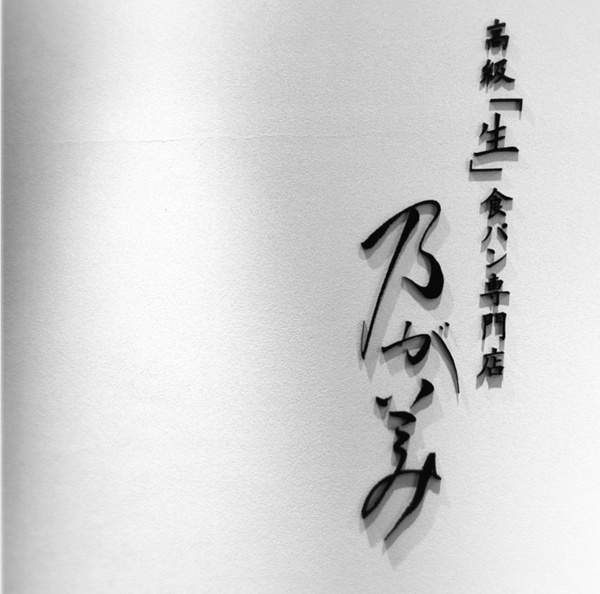 高級「生」食パン専門店
乃が美